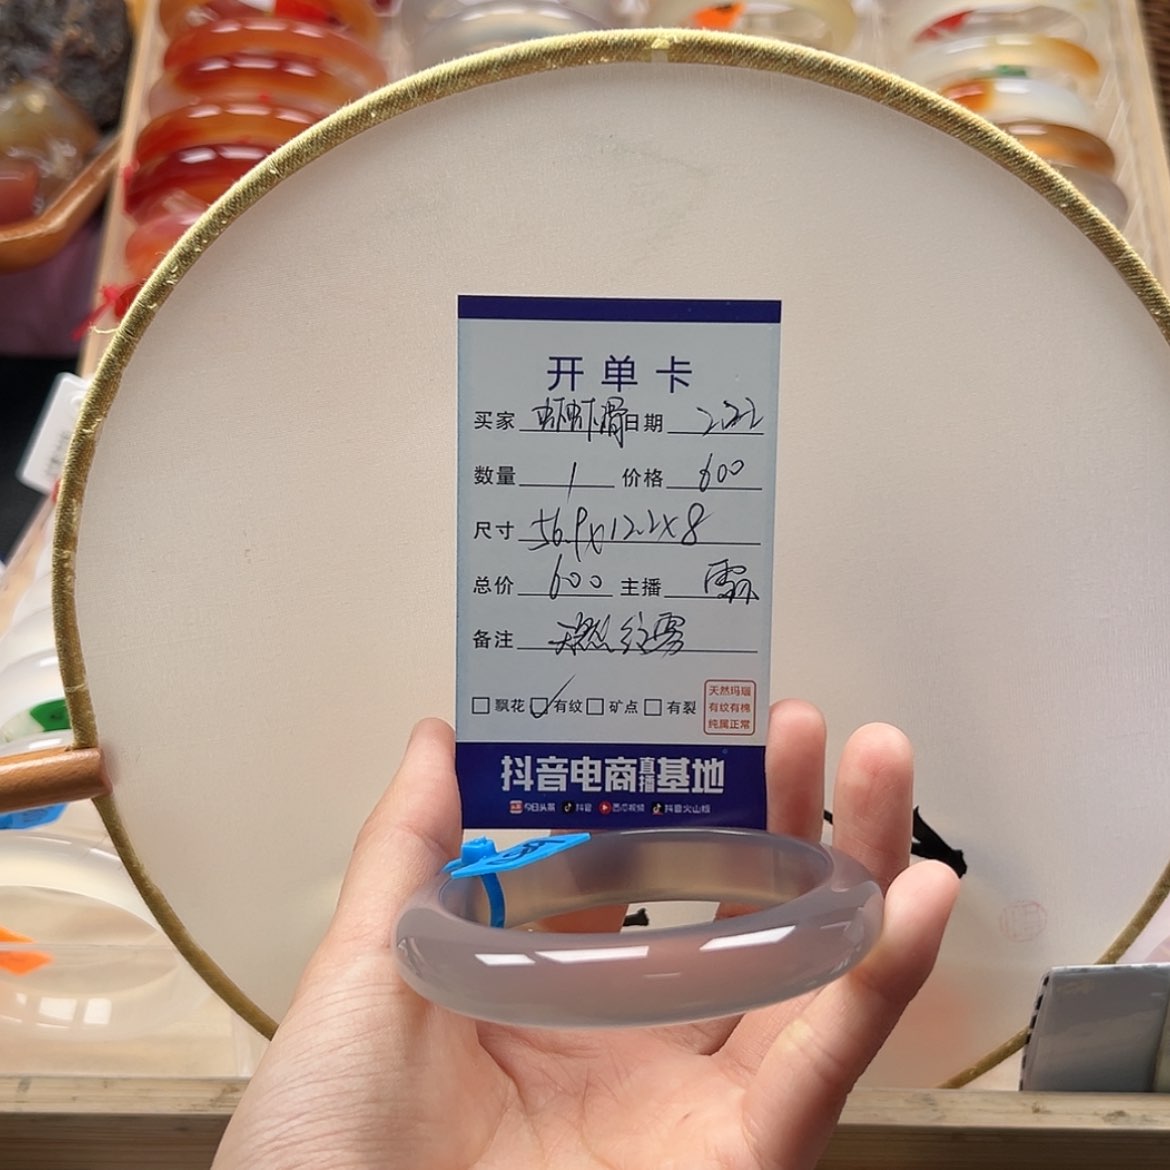 开单卡
买家 虾虾滑 日期 2.22
数量 1 价格 600
尺寸 56.9x12.2x8
总价 600 主播
备注 天然纹
飘花 有纹 矿点 有裂
天然玛瑙
有纹有棉
纯属正常
抖音电商直播基地
今日头条 抖音 西瓜视频 抖音火山版